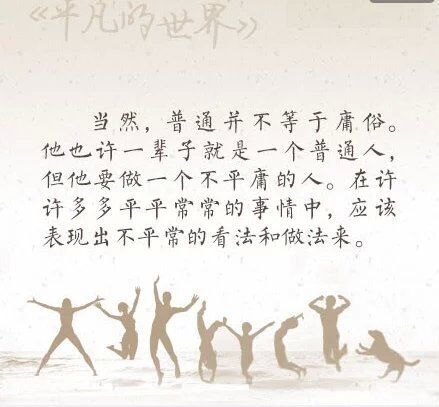 《平凡的世界》
当然，普通并不等于庸俗。
他也许一辈子就是一个普通人，
但他要做一个不平庸的人。在许
许多多平平常常的事情中，应该
表现出不平常的看法和做法来。